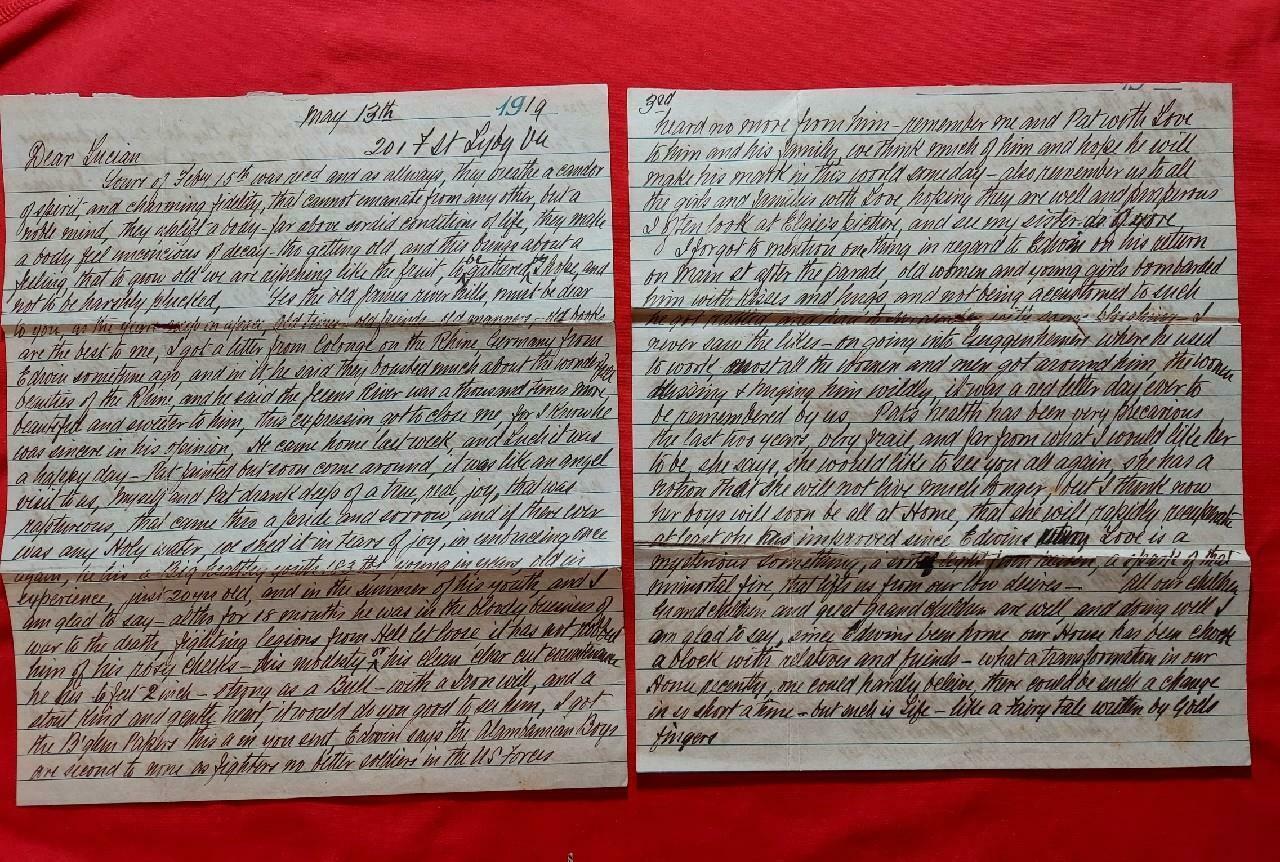 May 13th 1919
201 F St Lybg Va
Dear Lucian
Yours of Feby 15th was recd and as allways, they breathe a candor
of spirit, and charming fidelity, that cannot emanate from any other but a
noble mind, they a body far above sordid conditions of life, they make
a body feel unconcious of decay tho getting old and this brings about a
feeling, that to grow old we are ripening like the fruit, to be gathered, I hope, and
not to be harshly plucked, Yes the old James river hills, must be dear
to you, as the in old time, old friends, old manners - old books
are the best to me, I got a letter from Cologne on the Rhine, Germany from
Edwin sometime ago, and in it he said they boasted much about the wonderful
beauties of the Rhine and he said the Jeems River was a thousand times more
beautiful and sweeter to him, this expression got to close me, for I know he
was sincere in his opinion, He came home last week, and Luch it was
a happy day - Pat fainted but soon come around, it was like an angel
visit to us, Myself and Pat drank deep of a true, real, joy, that was
rapturous, that came thro a pride and sorrow, and if there ever
was any Holy water, we shed it in tears of joy, in embracing once
again, he is a Big healthy youth yet the young in years, old in
experience just 20 yrs old, and in the summer of his youth, and I
am glad to say - altho for 18 months he was in the bloody business of
war to the death, fighting legions from Hell let loose it has not robbed
him of his rosy cheeks - his modesty or his clean clear cut countenance
he is 6 feet 2 inch - strong as a Bull - with a Iron will, and a
stout kind and gentle heart it would do you good to see him, I got
the B'ghm Papers this a m you sent, Edwin says the Alambamian Boys
are second to none as fighters no better soldiers in the US Forces
3rd
heard no more from him - remember me and Pat with Love
to him and his family, we think much of him and hope he will
make his mark in this world someday - also remember us to all
the girls and families with Love, hoping they are well and prosperous
I often look at Elsie's picture, and see my sister as before
I forgot to mention one thing in regard to Edwin on his return
on Main st after the Parade, old women and young girls bombarded
him with kisses and hugs, and not being accustomed to such
he got and I
never saw the likes - on going into Guggenheimers where he used
to work most all the women and men got around him the women
kissing & huging him wildly, it was a red letter day ever to
be remembered by us Pats health has been very precarious
the last two years, very frail, and far from what I would like her
to be, she says, she would like to see you all again, she has a
notion that she will not live much longer but I think now
her boys will soon be all at Home, that she will rapidly recuperate
at least she has improved since Edwins Love is a
mysterious something, a light from heaven, a spark of that
immortal fire, that lifts us from our low desires - all our children
Grand children and great Grand children are well and doing well I
am glad to say, since Edwins been home our House has been chock
a block with relatives and friends - what a transformation in our
Home recently, one could hardly believe, there could be such a change
in so short a time - but such is Life - like a fairy tale written by Gods
fingers